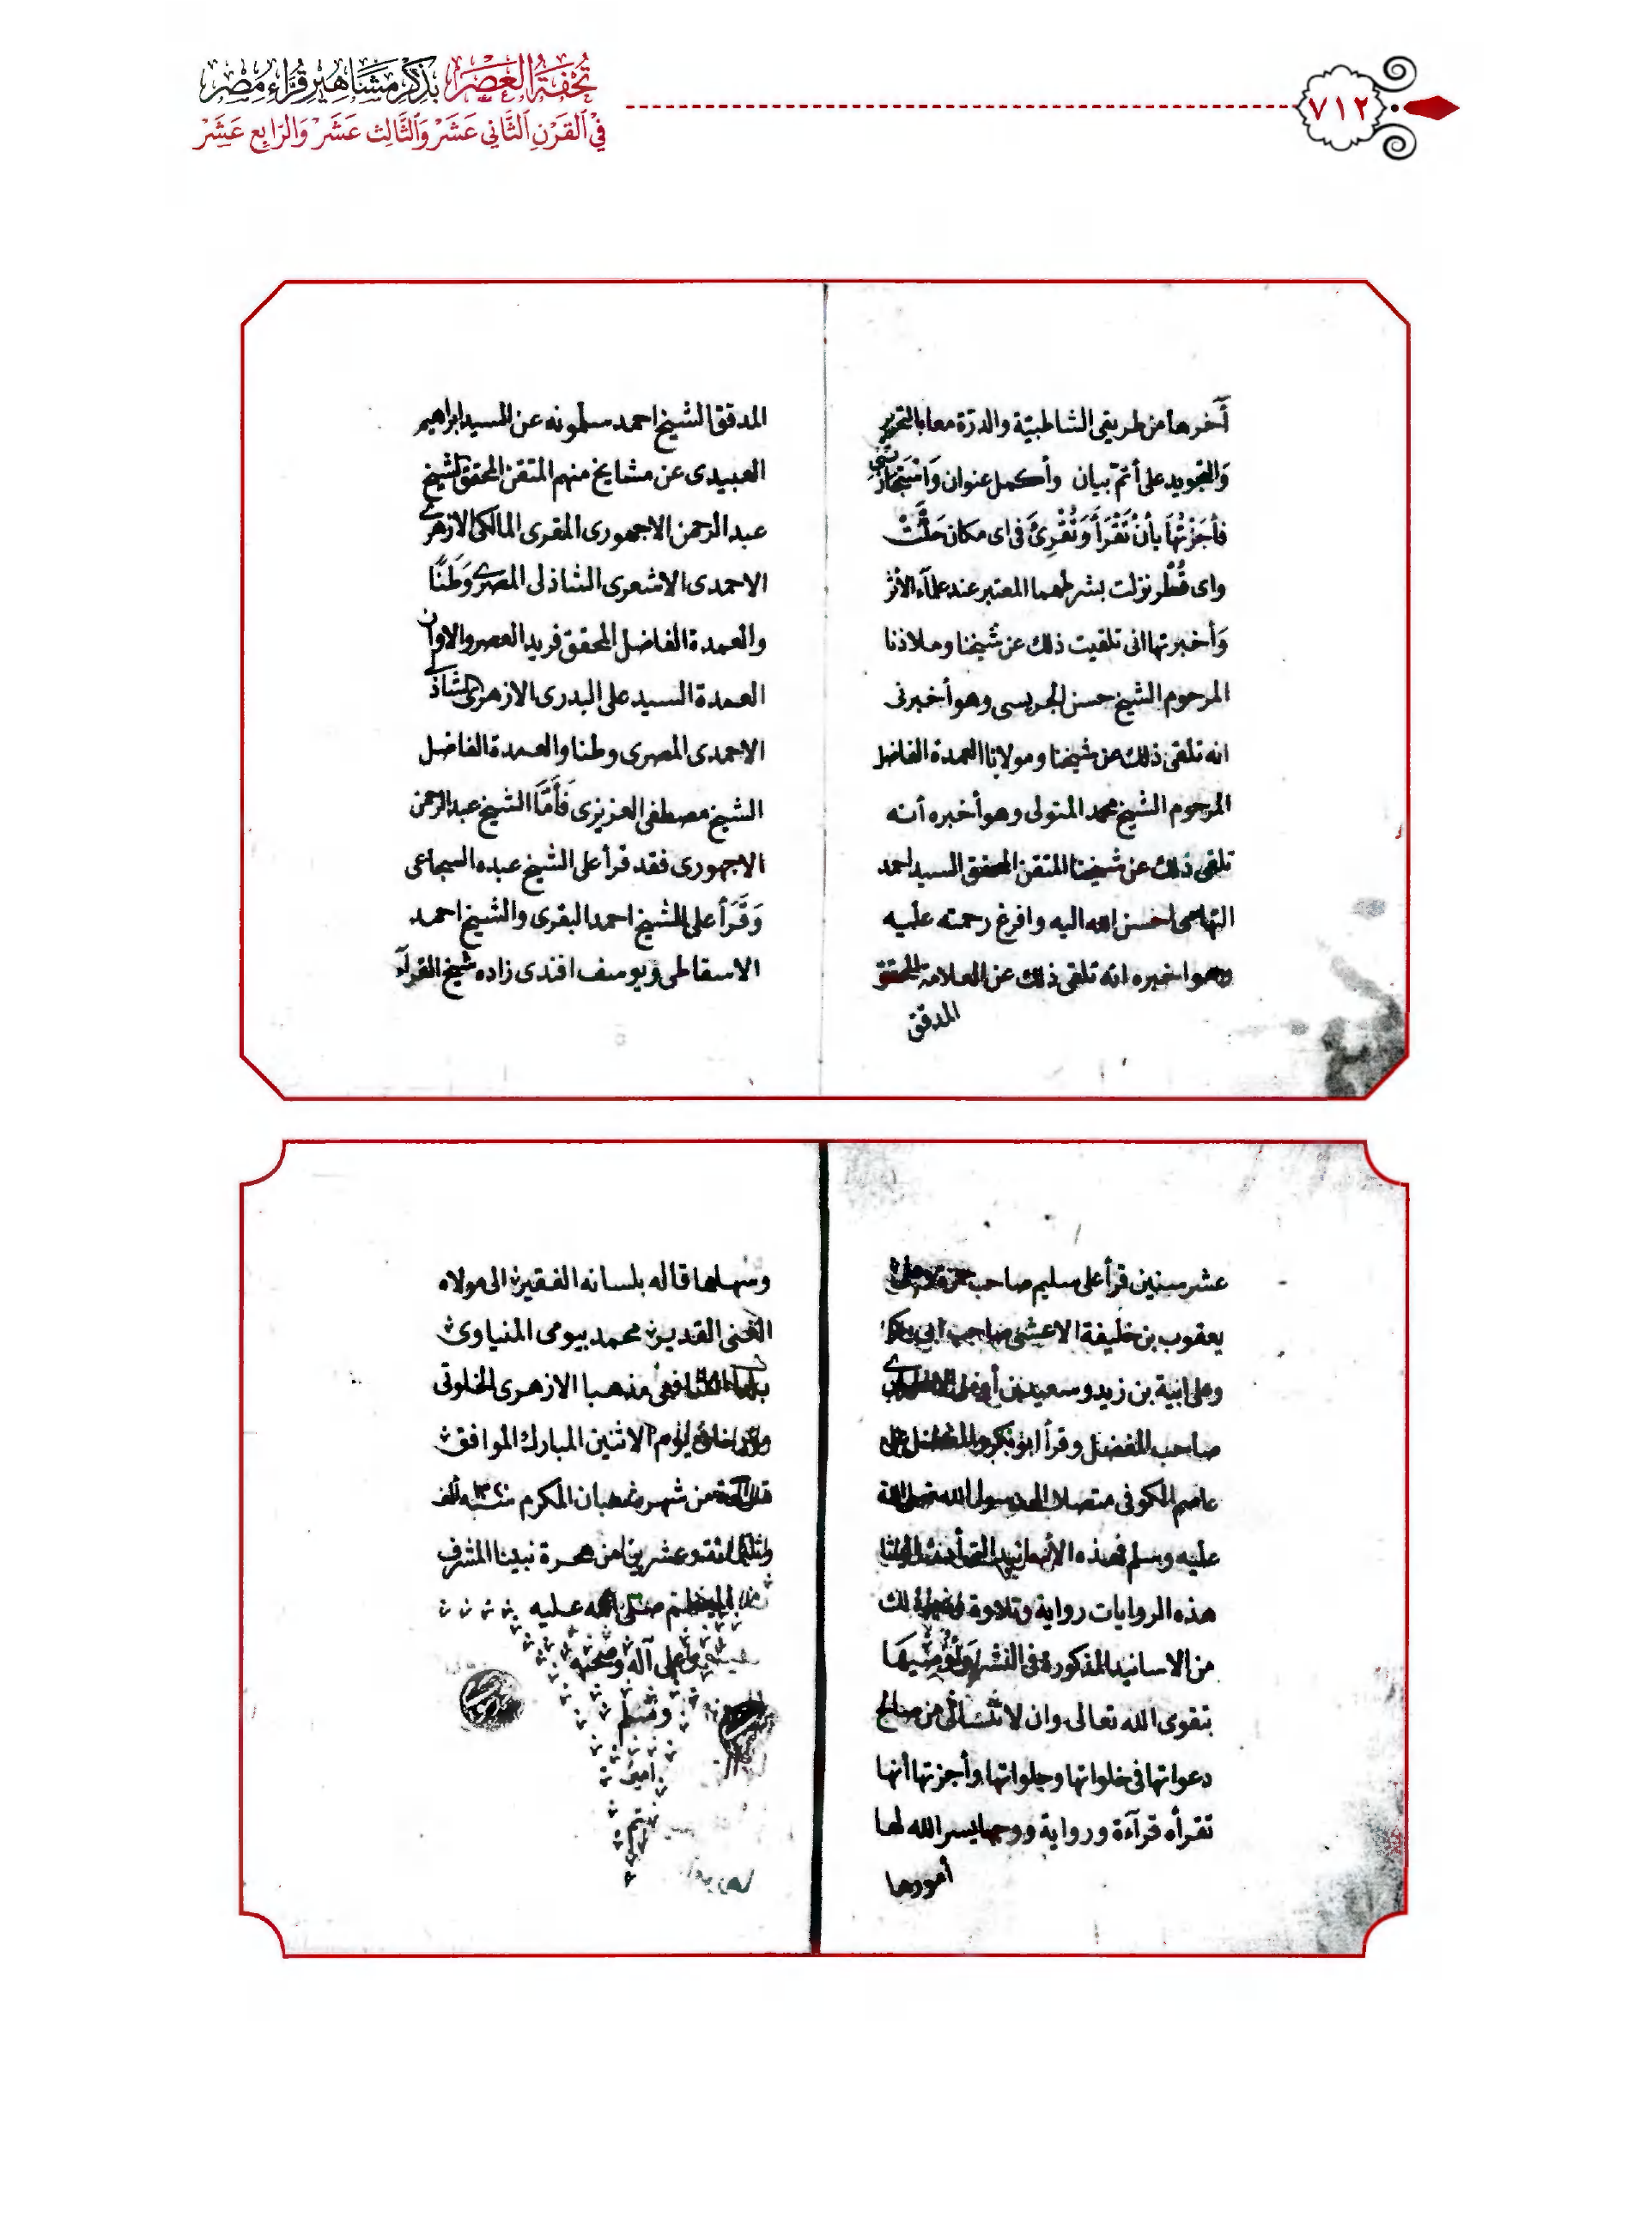 تُحْفَةُ الْعَصْرِ بِذِكْرِ مَشَاهِيرِ قُرَّاءِ مِصْرَ
فِي الْقَرْنِ الثَّانِي عَشَرَ وَالثَّالِثَ عَشَرَ وَالرَّابِعَ عَشَرَ
٧١٢
آخرها من طريقي الشاطبية والدرة معا بالتحرير
والتجويد على أتم بيان وأكمل عنوان وَاسْتَجَازتني
فأجَزْتُهَا بأنْ تَقْرَأَ وَتُقْرِئَ في اى مكان حَلَّتْ
واى قُطْر نزلت بشرطهما المعتبر عند علمآء الأثر
وَأخبرتها انى تلقيت ذلك عن شيخنا وملاذنا
المرحوم الشيخ حسن الجريسى وهو أخبرنى
انه تلقى ذلك عن شيخنا ومولانا العمدة الفاضل
المرحوم الشيخ محمد المتولى وهو أخبره أنه
تلقى ذلك عن شيخنا المتقن المحقق السيد احمد
التهامى احسن الله اليه وافرغ رحمته عليه
وهو اخبره انه تلقى ذلك عن العلامة المحقق
المدقق
المدقق الشيخ احمد سلمونه عن السيد ابراهيم
العبيدى عن مشايخ منهم المتقن المحقق الشيخ
عبد الرحمن الاجهورى المقرى المالكى الازهرى
الاحمدى الاشعرى الشاذلى المصرى وَطَنًا
والعمدة الفاضل المحقق فريد العصر والاوان
العمدة السيد على البدرى الازهرى الشاذلى
الاحمدى المصرى وطنا والعمدة الفاضل
الشيخ مصطفى العزيزى فَأَمَّا الشيخ عبد الرحمن
الاجهورى فقد قرأ على الشيخ عبده السجاعى
وَقَرَأ على الشيخ احمد البقرى والشيخ احمد
الاسقاطى ويوسف افندى زاده شيخ القرآء
عشر سنين قرأ على سليم صاحب حمزة
يعقوب بن خليفة الاعشى صاحب ابى بكر
وعلى ابية بن زيد وسعيد بن أوس
صاحب المفضل وقرأ ابو بكر والمفضل على
عاصم الكوفى متصلا الى رسول الله صلى الله
عليه وسلم فهذه الأسانيد التى أدت الينا
هذه الروايات رواية وتلاوة
من الاسانيد المذكورة فى النشر وَنُوصِيهَا
بتقوى الله تعالى وان لا تنسانى من صالح
دعواتها فى خلواتها وجلواتها وأجزتها أنها
تقرأه قرآءة ورواية ووجها يسر الله لها
أمورها
وسهلها قاله بلسانه الفقير الى مولاه
الغنى القدير محمد بيومى المنياوى
بلدا الشافعى مذهبا الازهرى الخلوتى
يوم الاثنين المبارك الموافق
من شهر شعبان المكرم سنة ١٣٢٠ الف
وثلثمائة وعشرين من هجرة نبينا المشرف
المعظم صلى الله عليه
وعلى آله وصحبه
وسلم
امين
تم